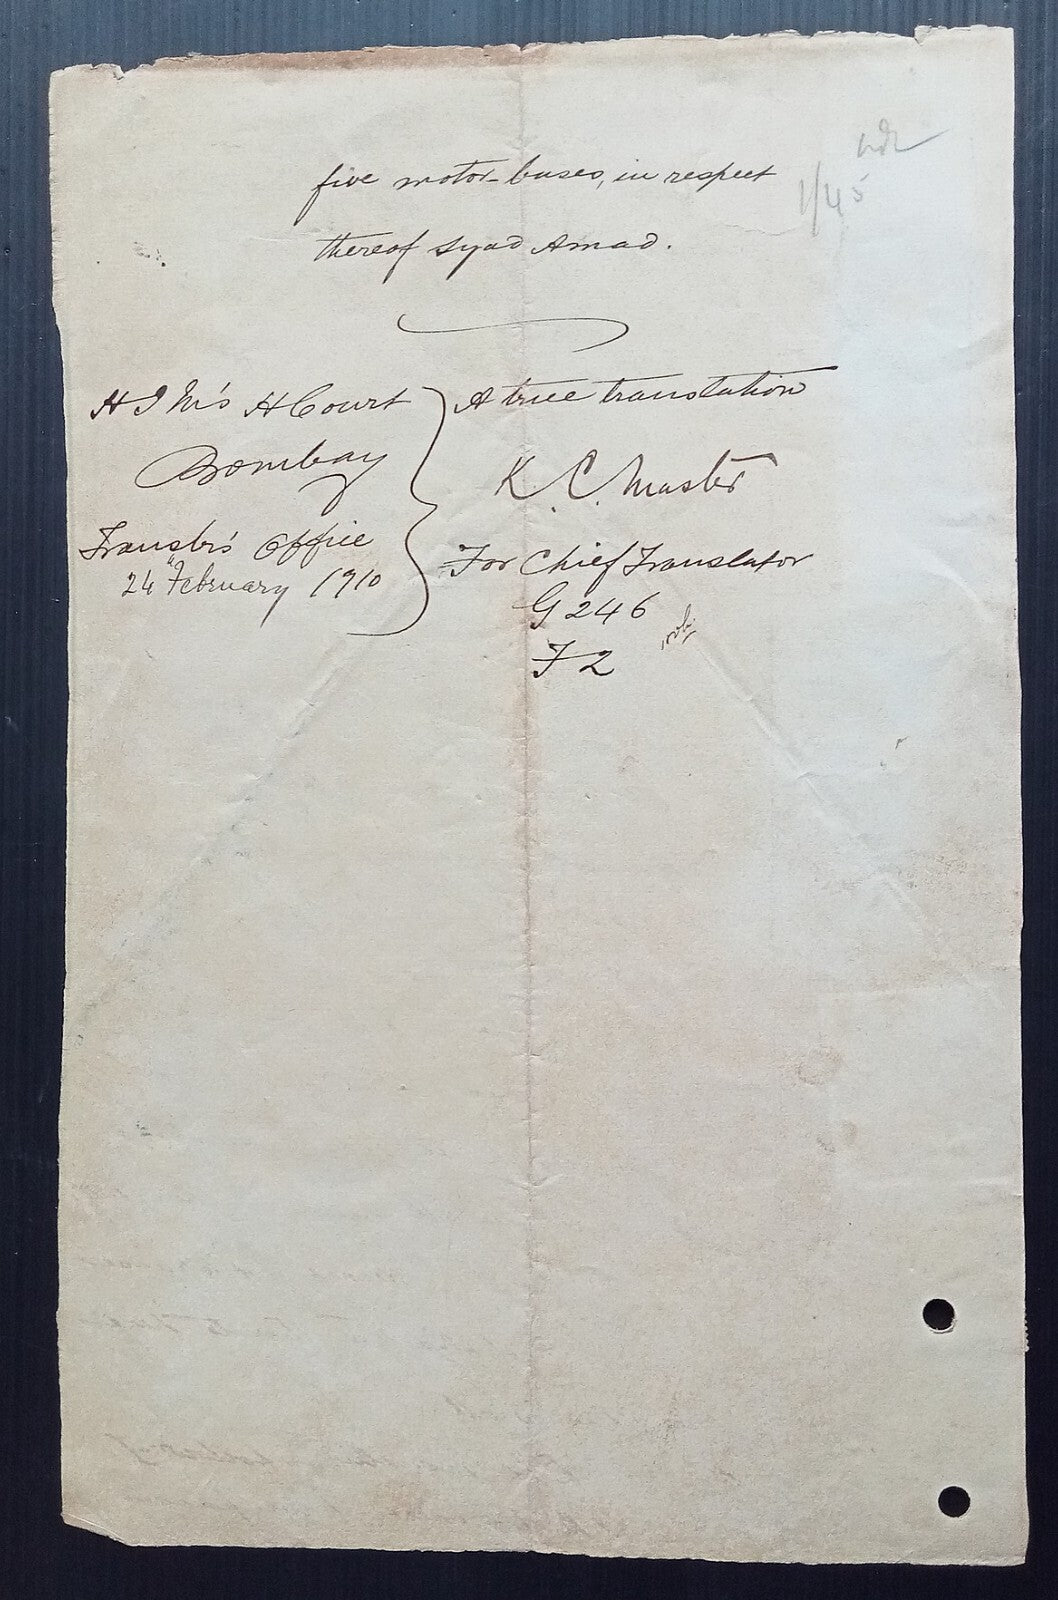 five motor-buses, in respect
thereof Syad Amad.
1/45
H I M's H Court
Bombay
Transtr's Office
24th February 1910
A true translation
K. C. Master
For Chief Translator
G 246
F 2